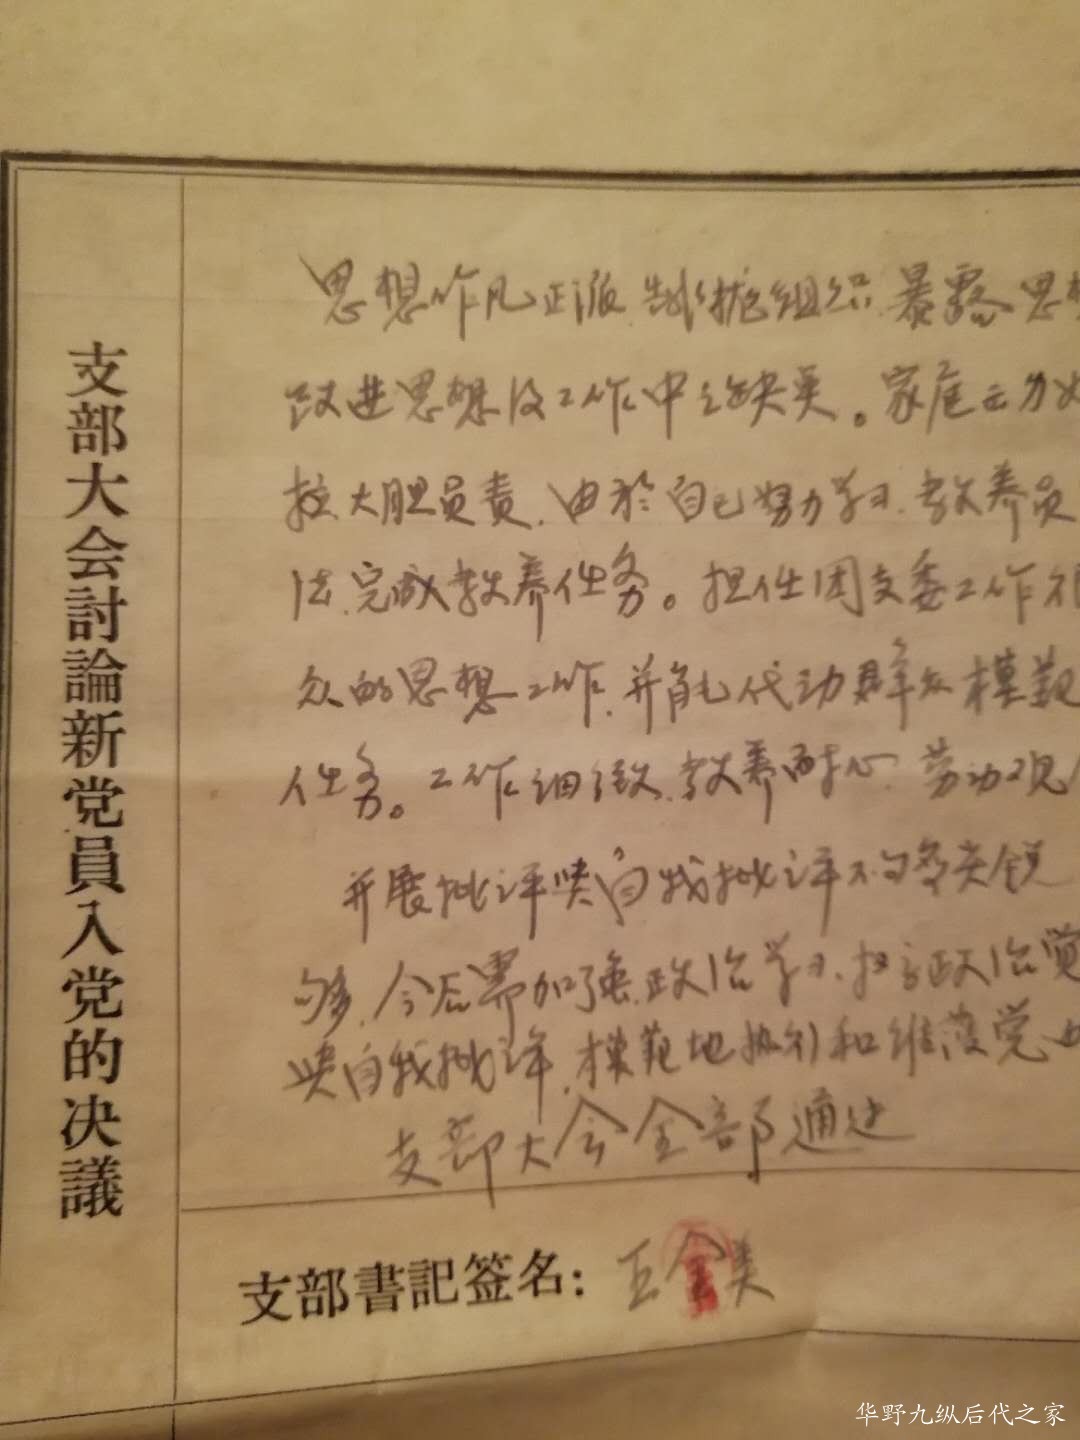 支部大会討論新党員入党的决議
思想作风正派 拥护组织 暴露思想
改进思想及工作中之缺点。家庭
大胆负责、由於自己努力学习、教养员
法、完成教养任务。担任团支委工作
众的思想工作、并能代动群众模范
任务。工作细致、教养耐心 劳动观
开展批评与自我批评不够尖锐
够、今后需加强政治学习、提高政治觉
与自我批评、模范地执行和维护党
支部大会全部通过
支部書記签名：王金美
华野九纵后代之家